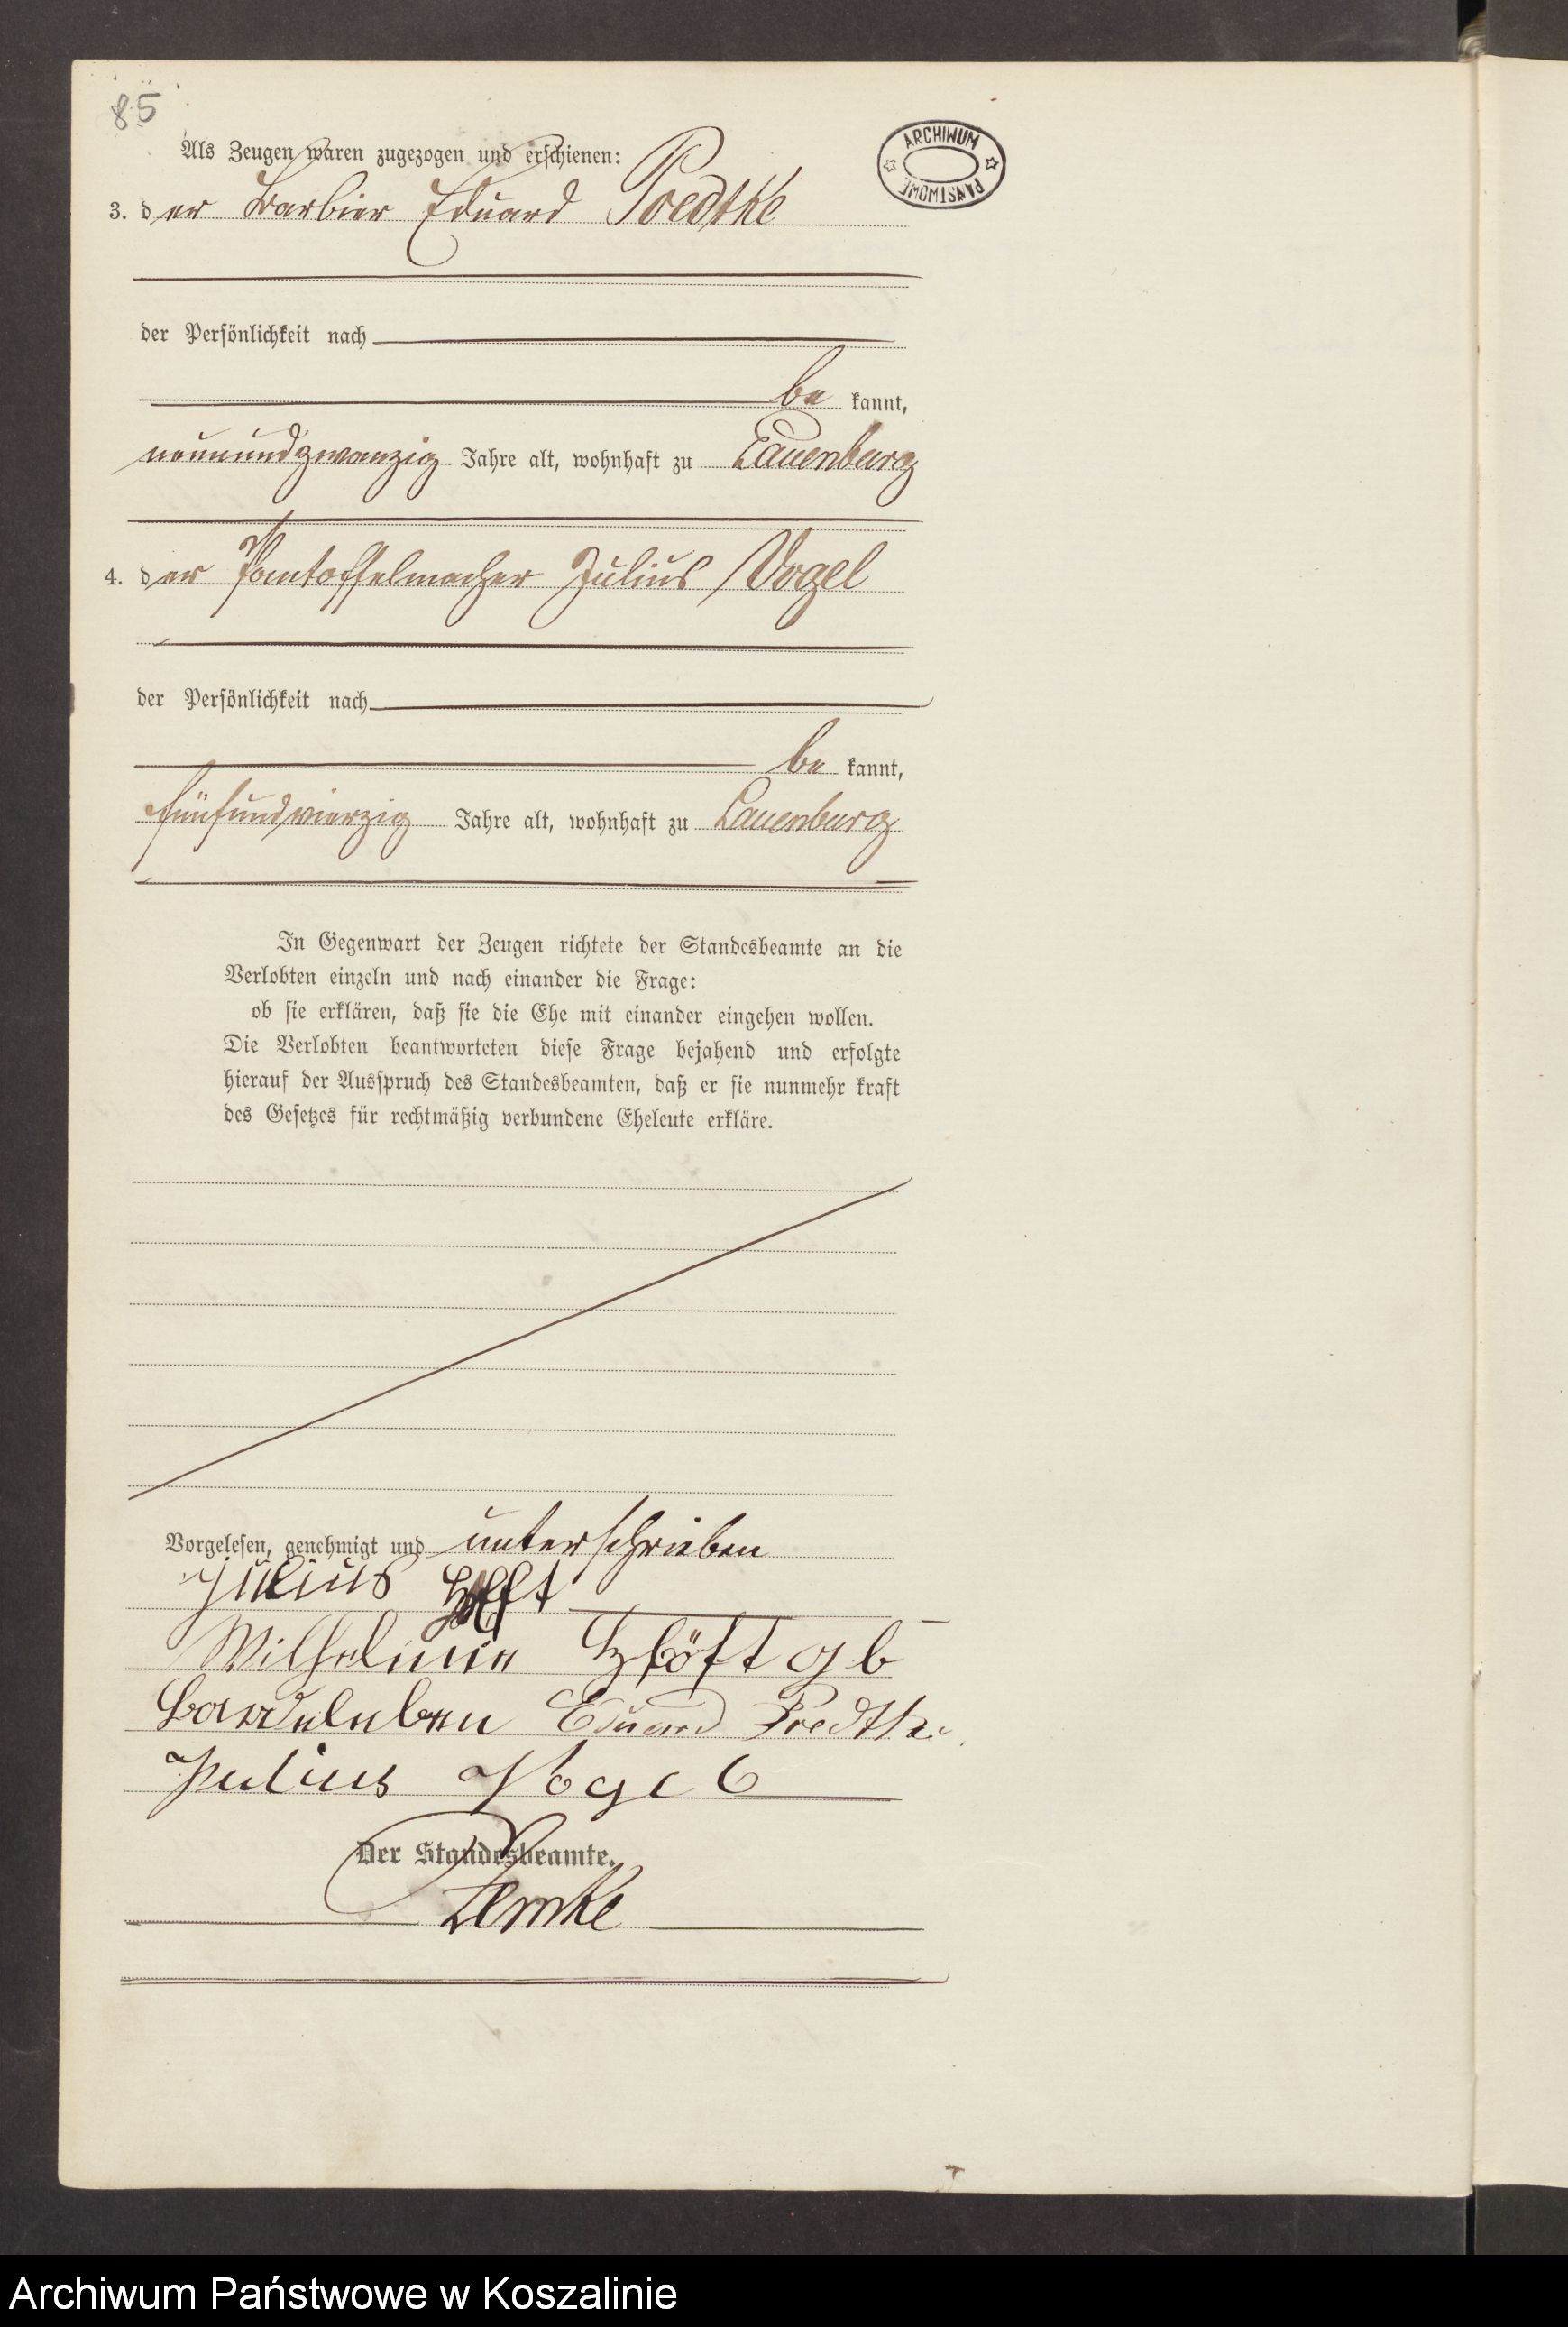 85
Als Zeugen waren zugezogen und erschienen:
ARCHIWUM PAŃSTWOWE
3. der Barbier Eduard Poedtke
der Persönlichkeit nach
be kannt,
neunundzwanzig Jahre alt, wohnhaft zu Lauenburg
4. der Pantoffelmacher Julius Vogel
der Persönlichkeit nach
be kannt,
fünfundvierzig Jahre alt, wohnhaft zu Lauenburg
In Gegenwart der Zeugen richtete der Standesbeamte an die
Verlobten einzeln und nach einander die Frage:
ob sie erklären, daß sie die Ehe mit einander eingehen wollen.
Die Verlobten beantworteten diese Frage bejahend und erfolgte
hierauf der Ausspruch des Standesbeamten, daß er sie nunmehr kraft
des Gesetzes für rechtmäßig verbundene Eheleute erkläre.
Vorgelesen, genehmigt und unterschrieben
Julius
Wilhelmine gb
Bardeleben Eduard Poedtke.
Julius Vogel
Der Standesbeamte.
Lemke
Archiwum Państwowe w Koszalinie